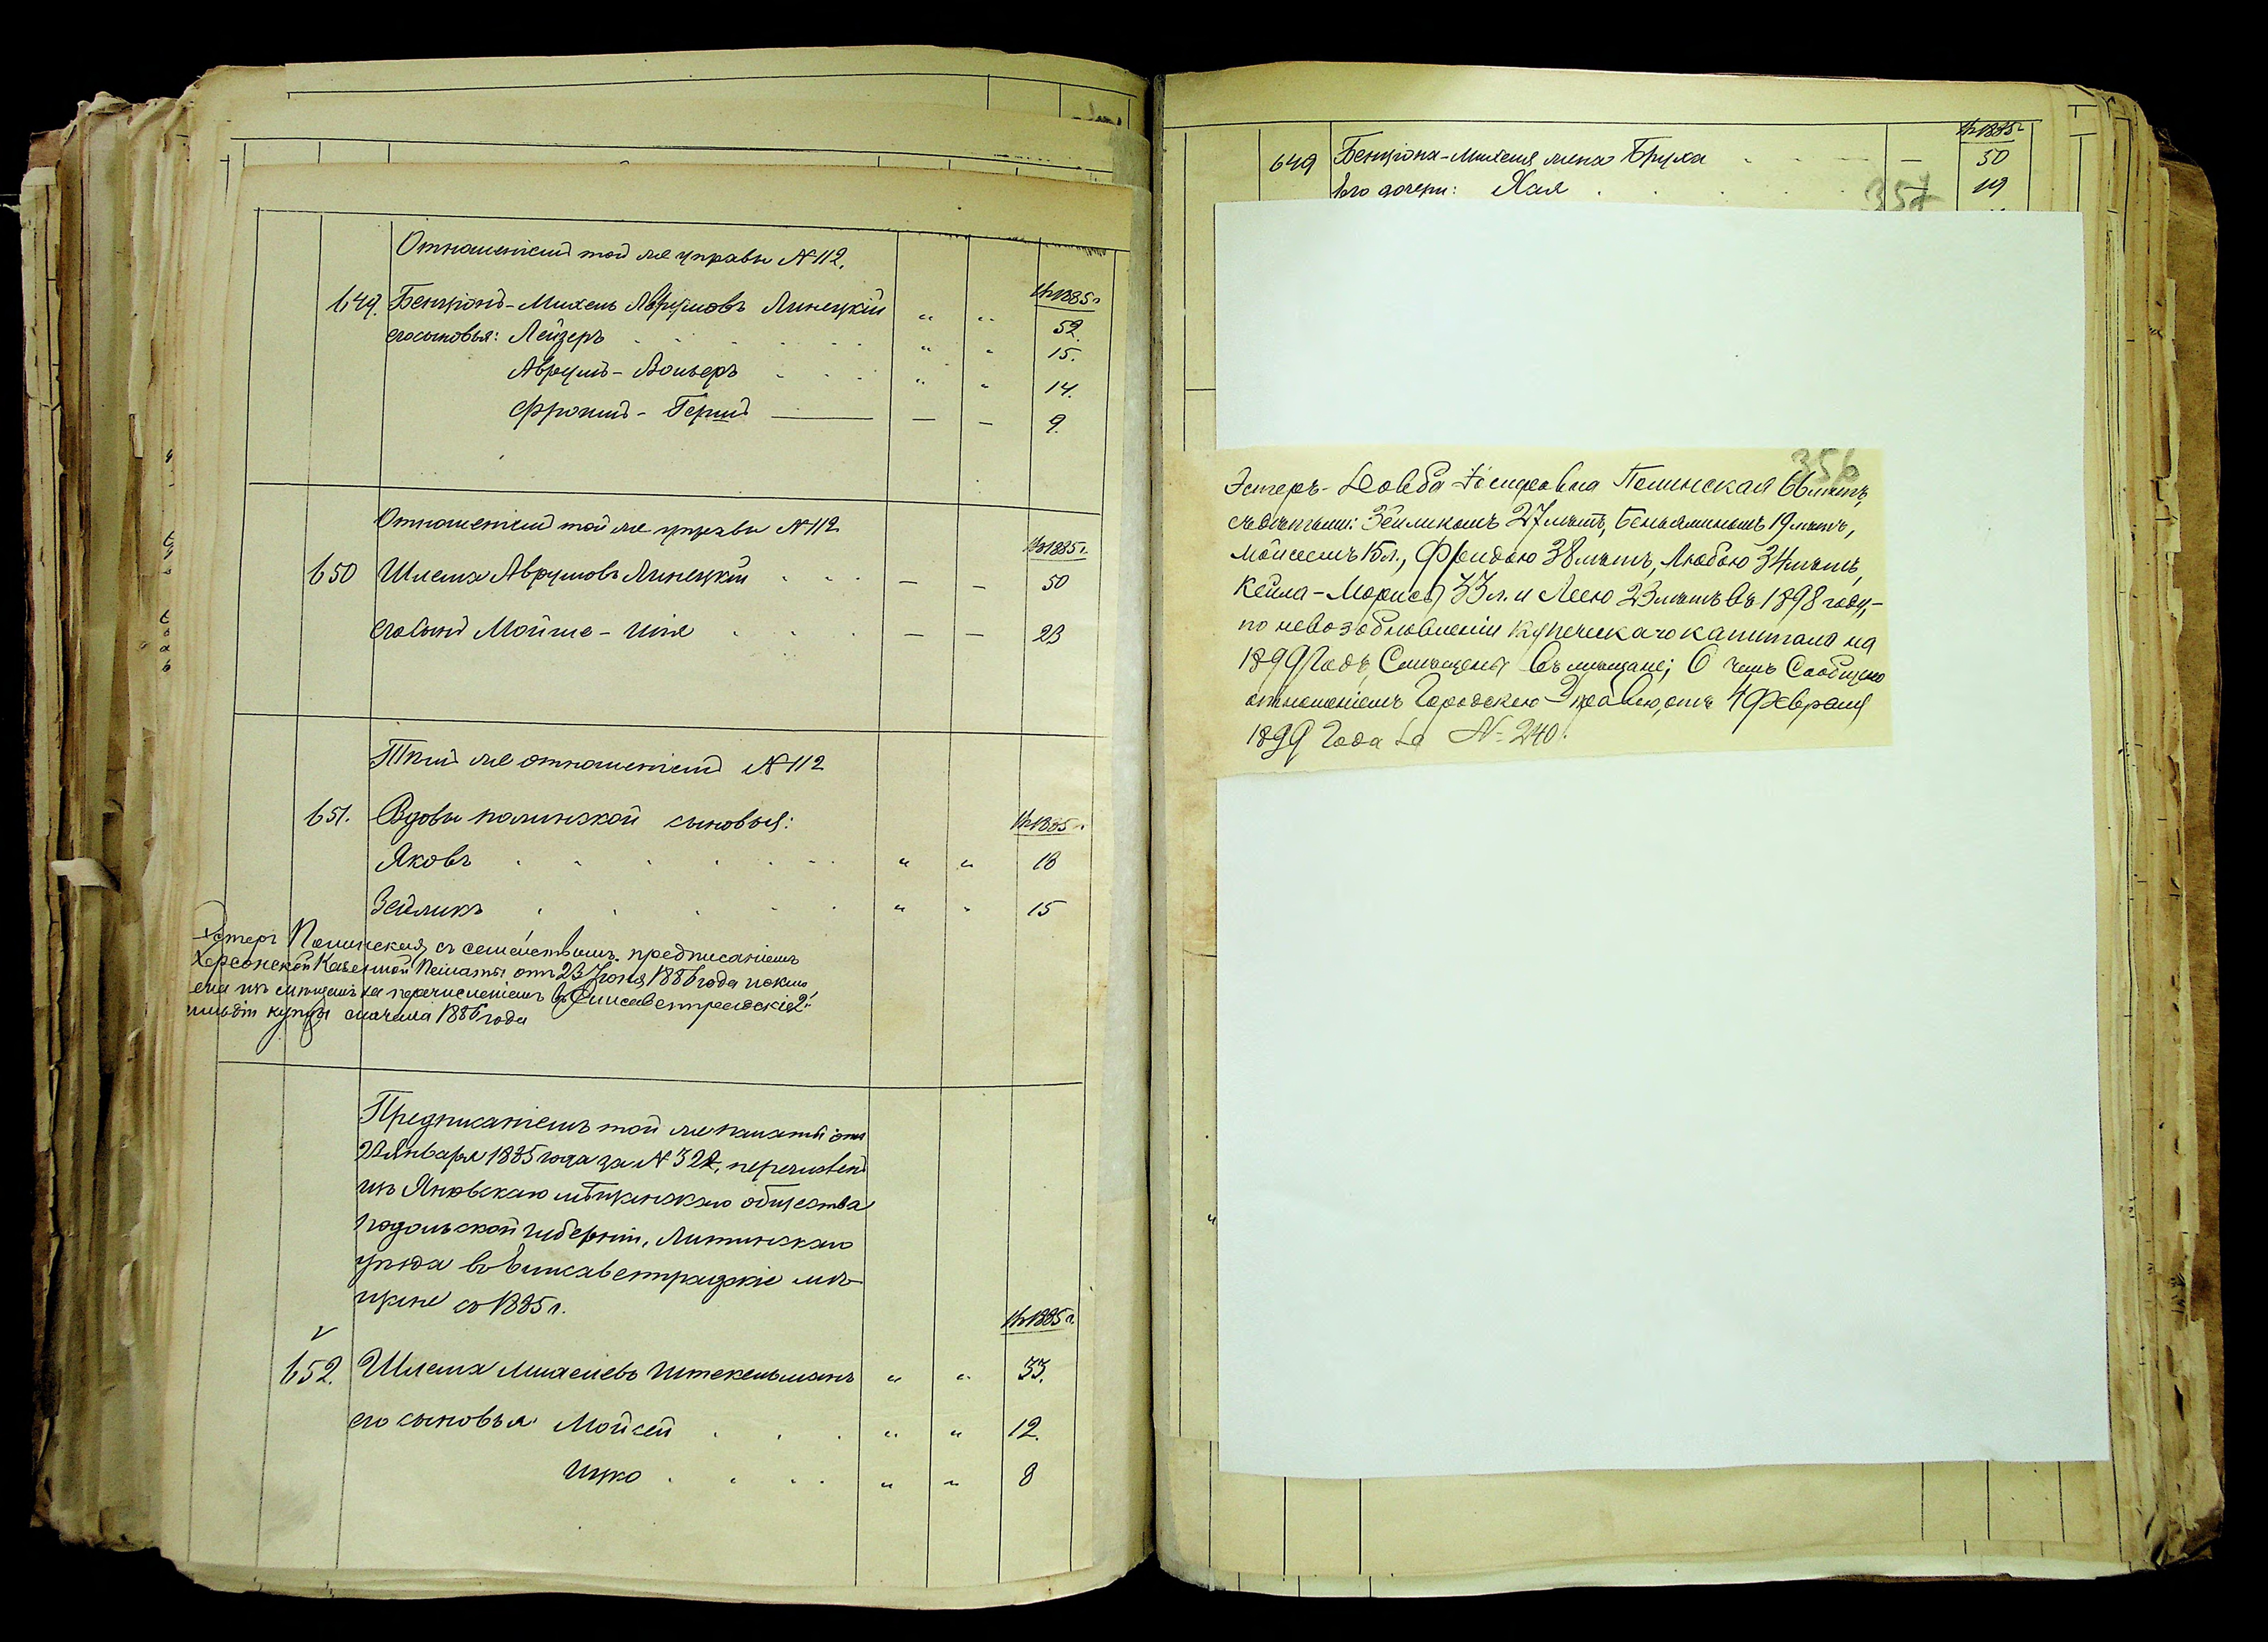 Отношеніемъ той же управы №112.
въ 1885 г
649. Бенціонъ-Михель Аврумовъ Линецкій " " 52
его сыновья: Лейзеръ " " 15.
Аврумъ-Вольеръ " " 14.
Фроимъ-Гершъ — — 9.
Отношеніемъ той же управы №112
въ 1885 г.
650 Шлема Аврумовъ Линецкій — — 50
его сынъ Мойше- — — 23
Тѣмъ же отношеніемъ №112
651. Вдовы Полинской сыновья: въ 1885 г.
Яковъ " " 18
Зейликъ " " 15
Эстеръ Полинская съ семействомъ, предписаніемъ
Херсонской Казенной Палаты отъ 23 Іюня 1886 года
изъ мѣщанъ за перечисленіемъ въ Елисаветградскіе 2й
гильдіи купцы сначала 1886 года
Предписаніемъ той же палаты отъ
22 Января 1885 года за №322, перечисленъ
изъ Яновскаго мѣщанскаго общества
Подольской губерніи, Литинскаго
уѣзда въ Елисаветградскіе мѣ-
щане съ 1885 г.
въ 1885 г.
652. Шлема Михелевъ Штекельманъ " " 33.
его сыновья Мойсей " " 12.
Ицко " " 8
въ 1885 г
649 Бенціона-Михеля жена Бруха — 50
Его дочери: Хая — 19
357
356
Эстеръ- Іосифовна Полинская 66 лѣтъ,
съ дѣтьми: Зейликомъ 27 лѣтъ, Беньяминомъ 19 лѣтъ,
Мойсеемъ 15 л., Фридою 38 лѣтъ, Любою 34 лѣтъ,
Кейла-Марией 33 л. и Леею 23 лѣтъ въ 1898 году,-
по невозобновленіи купеческаго капитала на
1899 Годъ, Смѣщены въ мѣщане; О чемъ Сообщено
отношеніемъ Городскою Управою, отъ 4 Февраля
1899 Года за №240.